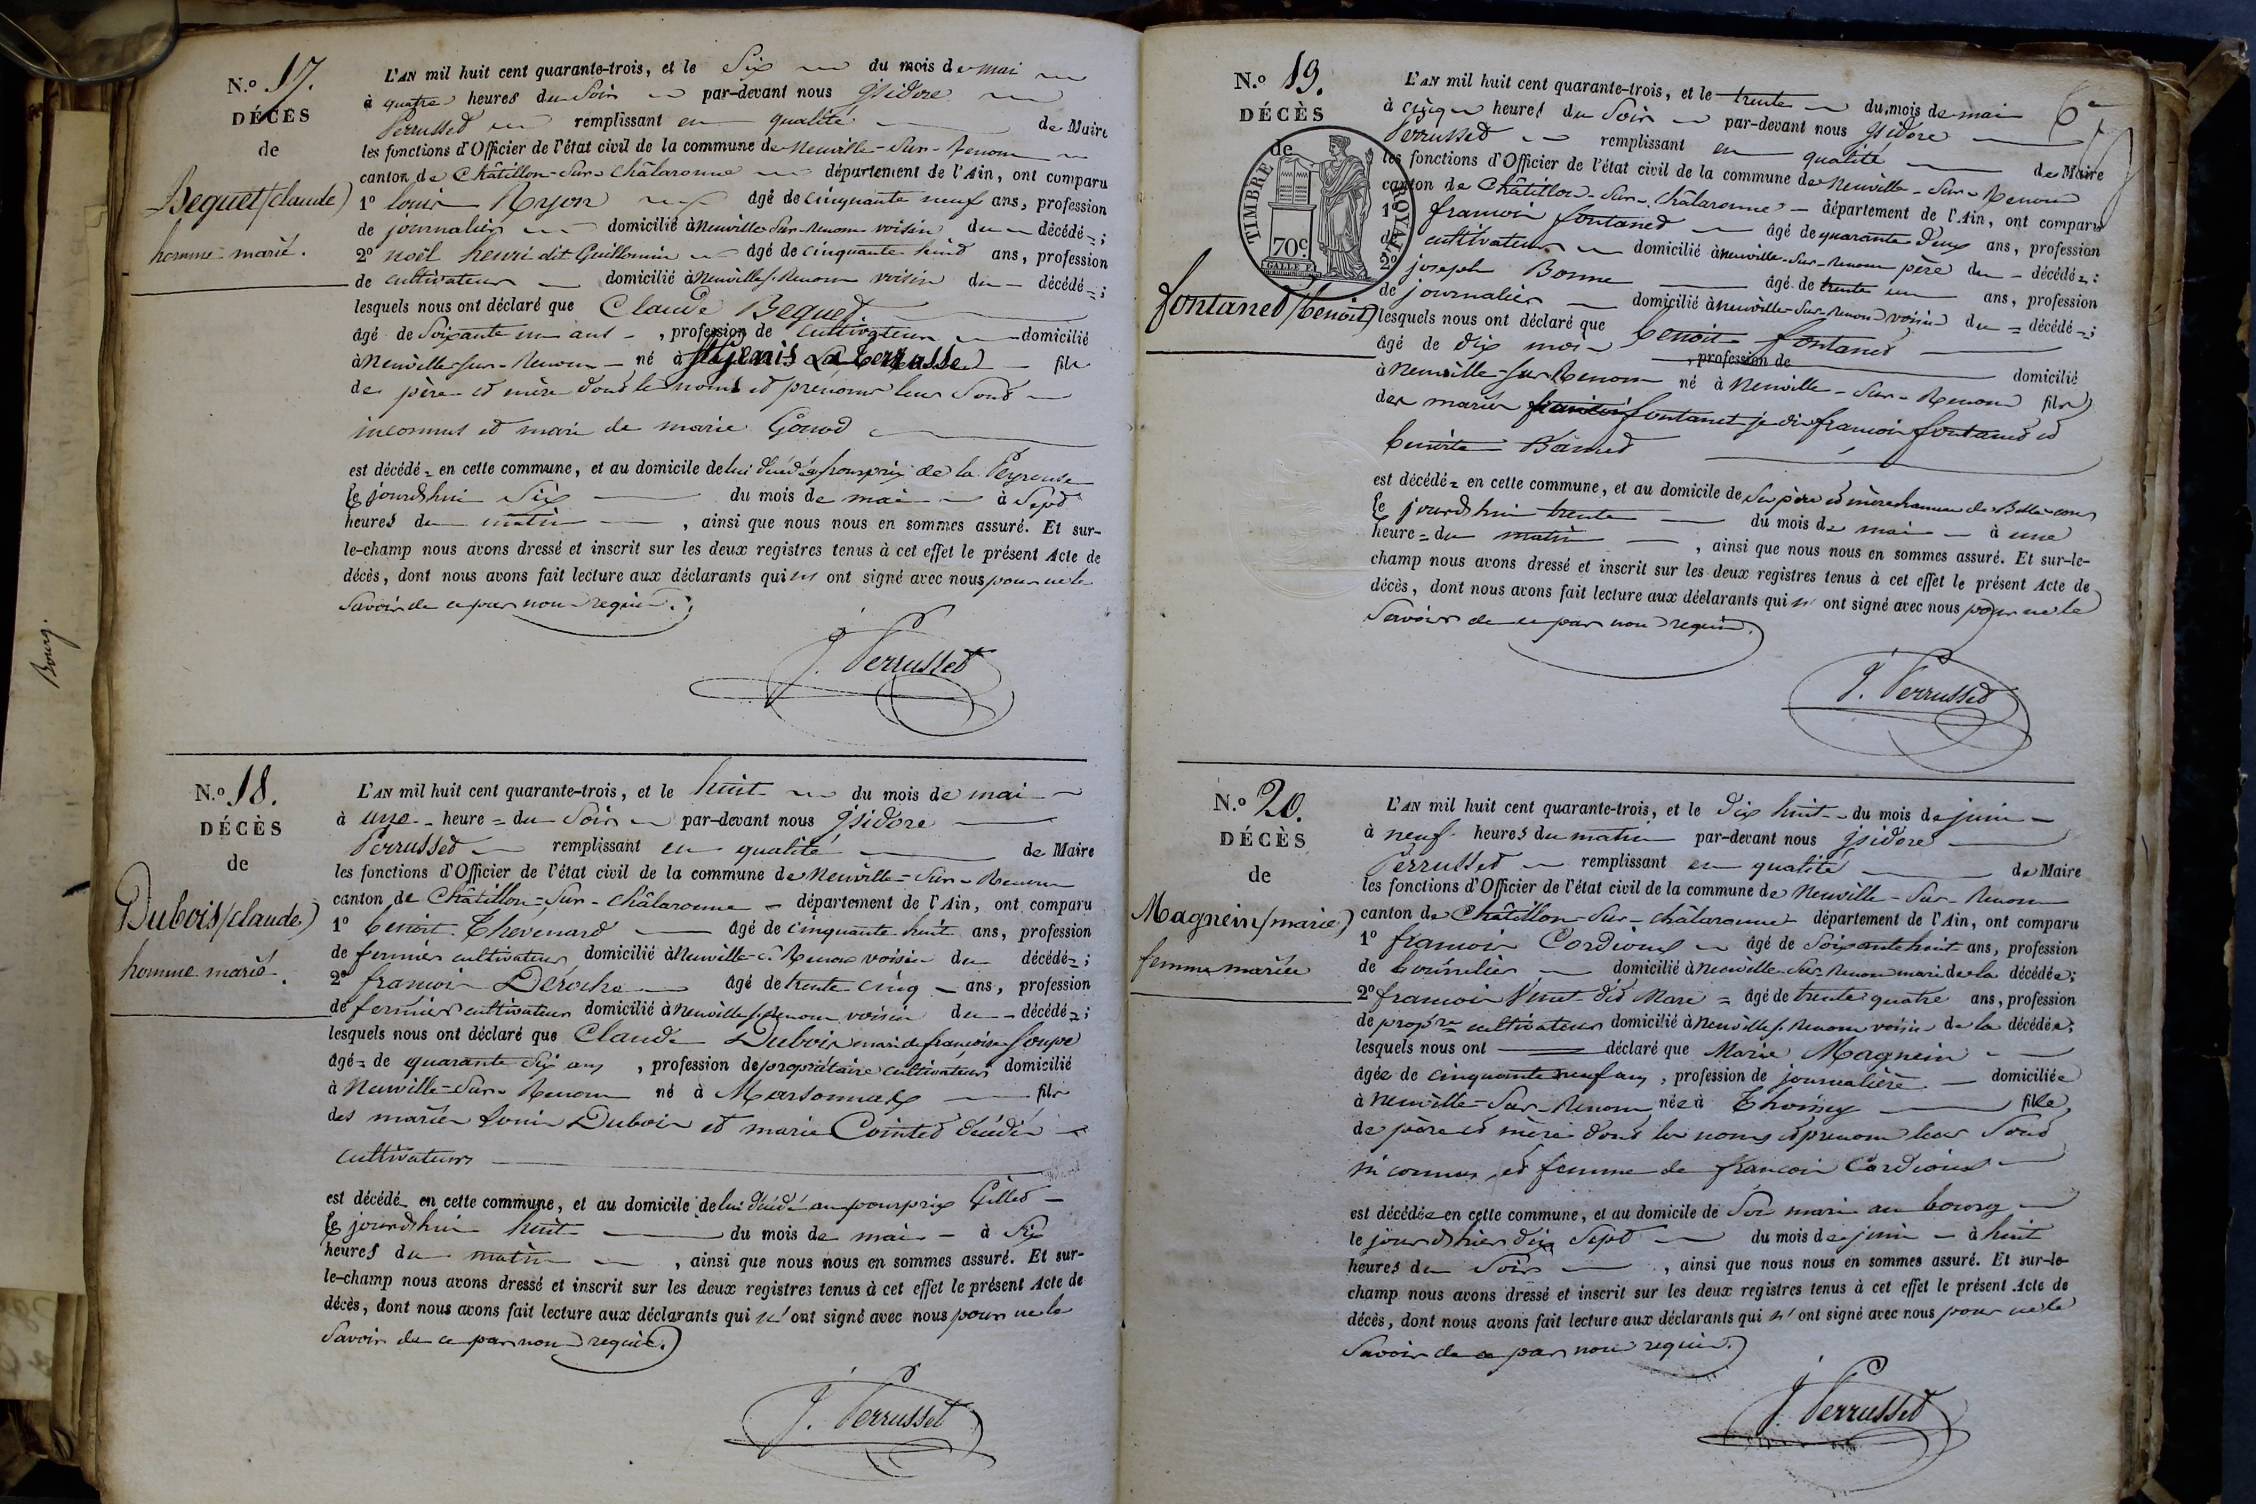 N.o 17.
DÉCÈS
de
Bequet (claude)
homme marié.
L'AN mil huit cent quarante-trois, et le Six du mois de mai
à quatre heures du Soir par-devant nous jsidore
Perrusset remplissant en qualité de Maire
les fonctions d'Officier de l'état civil de la commune de Neuville-Sur-Renom
canton de Châtillon-Sur-Châlaronne département de l'Ain, ont comparu
1o louis Ryon âgé de cinquante neuf ans, profession
de journalier domicilié à Neuville Sur-Renom voisin du décédé ;
2o noël henri dit Guillomin âgé de cinquante huit ans, profession
de cultivateur domicilié à Neuville s. Renom voisin du décédé ;
lesquels nous ont déclaré que Claude Bequet
âgé de Soixante un ans , profession de cultivateur domicilié
à Neuville-sur-Renom né à fils
de père et mère dont le noms et prénoms leur Sont
inconnus et mari de marie Gonod
est décédé en cette commune, et au domicile de lui décédé pourprix de la Peyrouse
le jourdhui Six du mois de mai à Sept
heures du matin , ainsi que nous nous en sommes assuré. Et sur-
le-champ nous avons dressé et inscrit sur les deux registres tenus à cet effet le présent Acte de
décès, dont nous avons fait lecture aux déclarants qui n' ont signé avec nous pour ne le
Savoir de ce par nous requis.
J. Perrusset
N.o 18.
DÉCÈS
de
Dubois (claude)
homme marié.
L'AN mil huit cent quarante-trois, et le huit du mois de mai
à une heure du Soir par-devant nous jsidore
Perrusset remplissant en qualité de Maire
les fonctions d'Officier de l'état civil de la commune de Neuville-Sur-Renom
canton de Châtillon-Sur-Châlaronne département de l'Ain, ont comparu
1o benoit Thevenard âgé de cinquante huit ans, profession
de fermier cultivateur domicilié à Neuville s. Renom voisin du décédé ;
2o francois Déroche âgé de trente cinq ans, profession
de fermier cultivateur domicilié à Neuville s. Renom voisin du décédé ;
lesquels nous ont déclaré que Claude Dubois mari de francoise Soupe
âgé de quarante dix ans , profession de propriétaire cultivateur domicilié
à Neuville-Sur-Renom né à Marsonnax fils
des mariés Louis Dubois et marie Cointet décédés
cultivateurs
est décédé en cette commune, et au domicile de lui décédé au pourprix Gillet
le jourdhui huit du mois de mai à Six
heures du matin , ainsi que nous nous en sommes assuré. Et sur-
le-champ nous avons dressé et inscrit sur les deux registres tenus à cet effet le présent Acte de
décès, dont nous avons fait lecture aux déclarants qui n' ont signé avec nous pour ne le
Savoir de ce par nous requis.
J. Perrusset
Bourg.
N.o 19.
DÉCÈS
de
TIMBRE ROYAL
70c.
fontanet (benoit)
6e
L'AN mil huit cent quarante-trois, et le trente du mois de mai
à cinq heures du Soir par-devant nous jsidore
Perrusset remplissant en qualité de Maire
les fonctions d'Officier de l'état civil de la commune de Neuville-Sur-Renom
canton de Châtillon-Sur-Châlaronne département de l'Ain, ont comparu
1o francois fontanet âgé de quarante deux ans, profession
de cultivateur domicilié à Neuville-Sur-Renom père du décédé ;
2o joseph Bonne âgé de trente un ans, profession
de journalier domicilié à Neuville-Sur-Renom voisin du décédé ;
lesquels nous ont déclaré que benoit fontanet
âgé de dix mois , profession de domicilié
à Neuville-Sur-Renom né à Neuville-Sur-Renom fils
des mariés fontanet je dis francois fontanet et
benoite
est décédé en cette commune, et au domicile de Ses père et mère
le jourdhui trente du mois de mai à une
heure du matin , ainsi que nous nous en sommes assuré. Et sur-le-
champ nous avons dressé et inscrit sur les deux registres tenus à cet effet le présent Acte de
décès, dont nous avons fait lecture aux déclarants qui n' ont signé avec nous pour ne le
Savoir de ce par nous requis.
J. Perrusset
N.o 20.
DÉCÈS
de
Magnein (marie)
femme mariée
L'AN mil huit cent quarante-trois, et le dix huit du mois de juin
à neuf heures du matin par-devant nous jsidore
Perrusset remplissant en qualité de Maire
les fonctions d'Officier de l'état civil de la commune de Neuville-Sur-Renom
canton de Châtillon-Sur-Châlaronne département de l'Ain, ont comparu
1o francois Cordioux âgé de Soixante huit ans, profession
de tonnelier domicilié à Neuville Sur Renom mari de la décédée ;
2o francois Vinet dit Mare âgé de trente quatre ans, profession
de propre cultivateur domicilié à Neuville s. Renom voisin de la décédée ;
lesquels nous ont déclaré que Marie Magnein
âgée de cinquante neuf ans , profession de journalière domiciliée
à Neuville-Sur-Renom née à Thoissey fille
de père et mère dont les noms et prénom leur Sont
inconnus, et femme de francois Cordioux
est décédée en cette commune, et au domicile de Son mari au bourg
le jour d'hier dix Sept du mois de juin à huit
heures du Soir , ainsi que nous nous en sommes assuré. Et sur-le-
champ nous avons dressé et inscrit sur les deux registres tenus à cet effet le présent Acte de
décès, dont nous avons fait lecture aux déclarants qui n' ont signé avec nous pour ne le
Savoir de ce par nous requis.
J. Perrusset